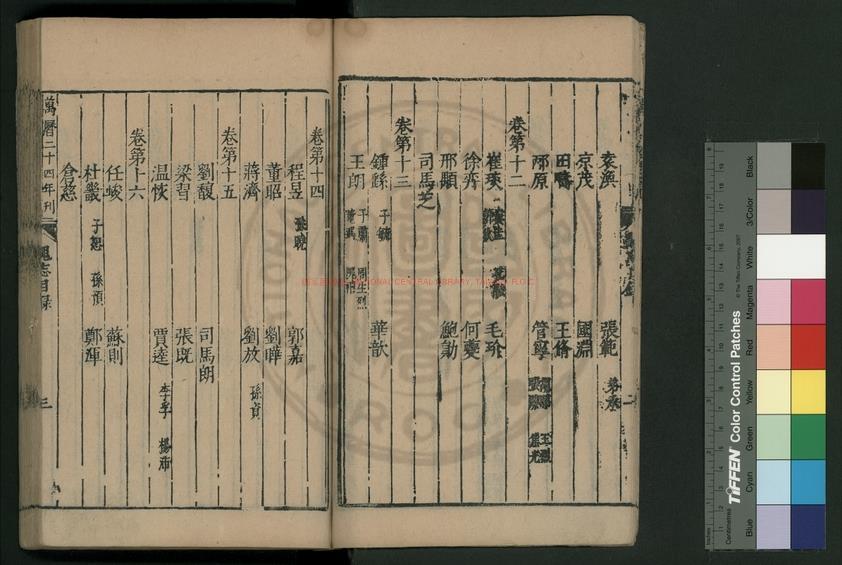 袁渙 張範 弟承
京茂 國淵
田疇 王脩
邴原 管寧 王烈 張臶 焦先
卷第十二
崔琰 毛玠
徐奕 何夔
邢顒 鮑勛
司馬芝
卷第十三
鍾繇 子毓 華歆
王朗 子肅 周生烈
卷第十四
程昱 孫曉 郭嘉
董昭 劉曄
蔣濟 劉放 孫資
卷第十五
劉馥 司馬朗
梁習 張既
溫恢 賈逵 李孚 楊沛
卷第十六
任峻 蘇則
杜畿 子恕 孫預 鄭渾
倉慈
萬曆二十四年刊 魏志目錄 三
NATIONAL CENTRAL LIBRARY, TAIWAN, R.O.C
TIFFEN Color Control Patches
© The Tiffen Company, 2007
Centimetres
Inches
Blue
Cyan
Green
Yellow
Red
Magenta
White
3/Color
Black